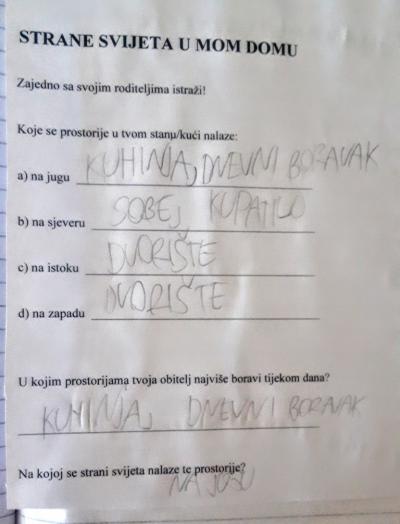 STRANE SVIJETA U MOM DOMU
Zajedno sa svojim roditeljima istraži!
Koje se prostorije u tvom stanu/kući nalaze:
a) na jugu KUHINJA, DNEVNI BORAVAK
b) na sjeveru SOBE, KUPATILO
c) na istoku DVORIŠTE
d) na zapadu DVORIŠTE
U kojim prostorijama tvoja obitelj najviše boravi tijekom dana?
KUHINJA, DNEVNI BORAVAK
Na kojoj se strani svijeta nalaze te prostorije?
NA JUGU